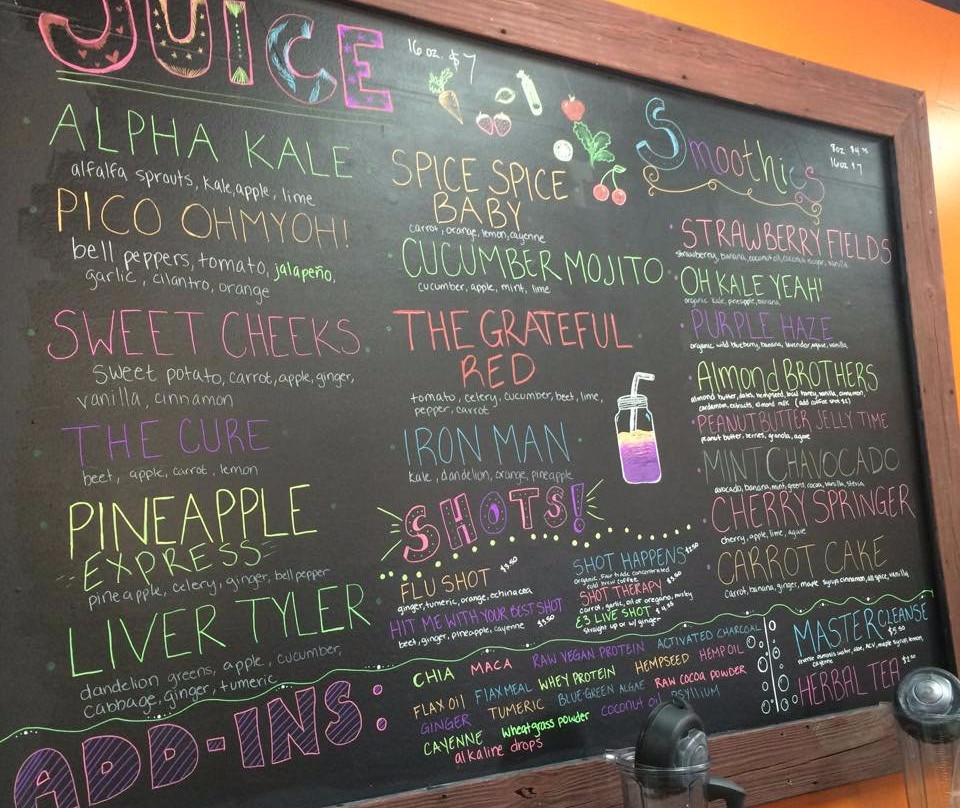 JUICE
16 oz. $7
ALPHA KALE
alfalfa sprouts, kale, apple, lime
PICO OHMYOH!
bell peppers, tomato, jalapeño,
garlic, cilantro, orange
SWEET CHEEKS
sweet potato, carrot, apple, ginger,
vanilla, cinnamon
THE CURE
beet, apple, carrot, lemon
PINEAPPLE
EXPRESS
pineapple, celery, ginger, bell pepper
LIVER TYLER
dandelion greens, apple, cucumber,
cabbage, ginger, tumeric
SPICE SPICE
BABY
carrot, orange, lemon, cayenne
CUCUMBER MOJITO
cucumber, apple, mint, lime
THE GRATEFUL
RED
tomato, celery, cucumber, beet, lime,
pepper, carrot
IRON MAN
kale, dandelion, orange, pineapple
SHOTS!
FLU SHOT $3.50
ginger, tumeric, orange, echinacea
HIT ME WITH YOUR BEST SHOT
beet, ginger, pineapple, cayenne $3.50
SHOT HAPPENS $2.50
organic, fair trade concentrated
cold brew coffee
SHOT THERAPY $3.50
carrot, garlic, oil of oregano, parsley
E3 LIVE SHOT
straight up or w/ ginger
Smoothies
8oz
16oz $7
STRAWBERRY FIELDS
strawberry, banana, coconut oil, vanilla
OH KALE YEAH!
organic kale, pineapple, banana
PURPLE HAZE
organic wild blueberry, banana, lavender, agave, vanilla
ALMOND BROTHERS
almond butter, dates, hempseed, local honey, vanilla, cinnamon,
cardamom extracts, almond milk (add coffee shot
PEANUT BUTTER JELLY TIME
peanut butter, berries, granola, agave
MINT CHAVOCADO
avocado, banana, mint, greens, cocoa, vanilla, stevia
CHERRY SPRINGER
cherry, apple, lime, agave
CARROT CAKE
carrot, banana, ginger, maple syrup, cinnamon, all spice, vanilla
MASTER CLEANSE
$5.50
water, aloe, ACV, maple syrup, lemon,
cayenne
HERBAL TEA
ADD-INS:
CHIA MACA RAW VEGAN PROTEIN ACTIVATED CHARCOAL
FLAX OIL FLAXMEAL WHEY PROTEIN HEMPSEED HEMP OIL
GINGER TUMERIC BLUE-GREEN ALGAE RAW COCOA POWDER
CAYENNE wheatgrass powder COCONUT OIL PSYLLIUM
alkaline drops